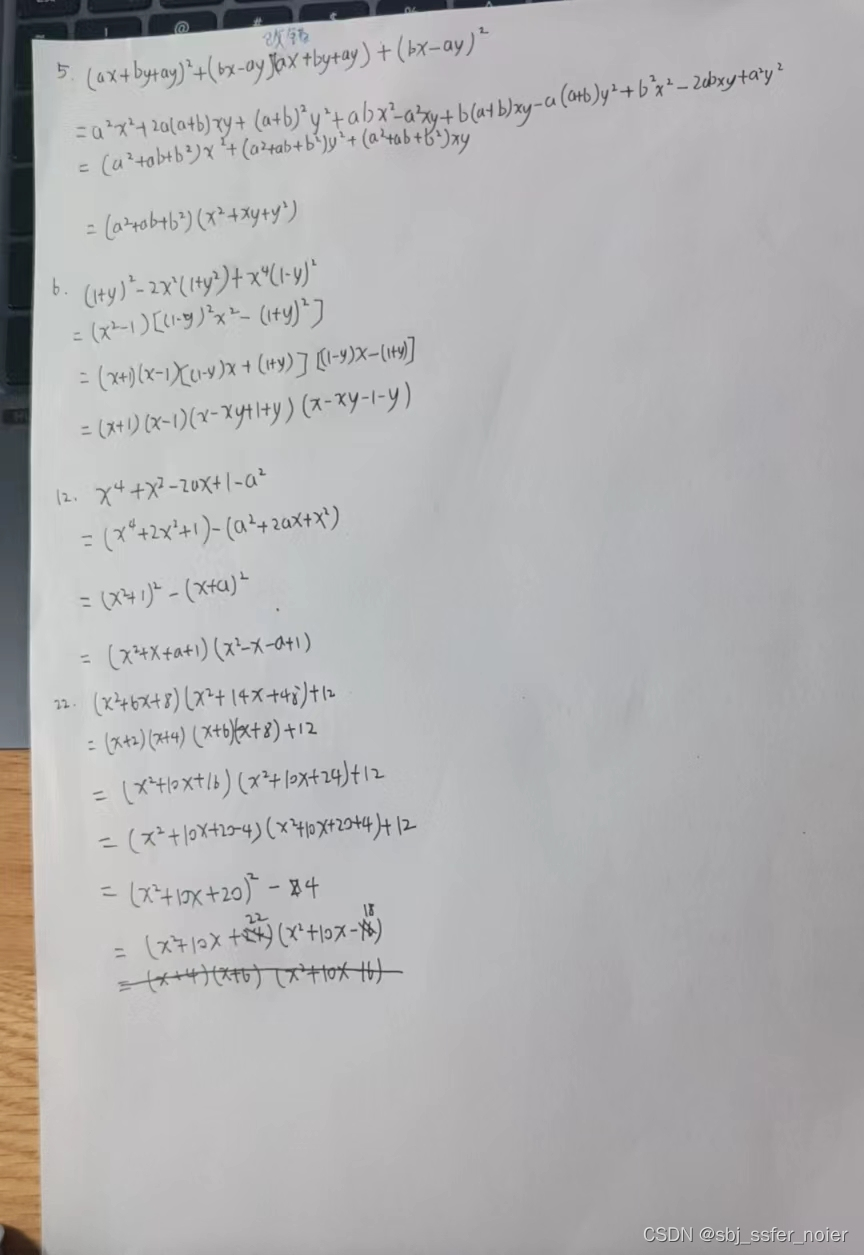 改错
5. (ax+by+ay)²+(bx-ay)(ax+by+ay)+(bx-ay)²
=a²x²+2a(a+b)xy+(a+b)²y²+abx²-a²xy+b(a+b)xy-a(a+b)y²+b²x²-2abxy+a²y²
=(a²+ab+b²)x²+(a²+ab+b²)y²+(a²+ab+b²)xy
=(a²+ab+b²)(x²+xy+y²)
6. (1+y)²-2x²(1+y²)+x⁴(1-y)²
=(x²-1)[(1-y)²x²-(1+y)²]
=(x+1)(x-1)[(1-y)x+(1+y)][(1-y)x-(1+y)]
=(x+1)(x-1)(x-xy+1+y)(x-xy-1-y)
12. x⁴+x²-2ax+1-a²
=(x⁴+2x²+1)-(a²+2ax+x²)
=(x²+1)²-(x+a)²
=(x²+x+a+1)(x²-x-a+1)
22. (x²+6x+8)(x²+14x+48)+12
=(x+2)(x+4)(x+6)(x+8)+12
=(x²+10x+16)(x²+10x+24)+12
=(x²+10x+20-4)(x²+10x+20+4)+12
=(x²+10x+20)²-4
=(x²+10x+22)(x²+10x-18)
=(x+4)(x+6)(x²+10x-16)
CSDN @sbj_ssfer_noier